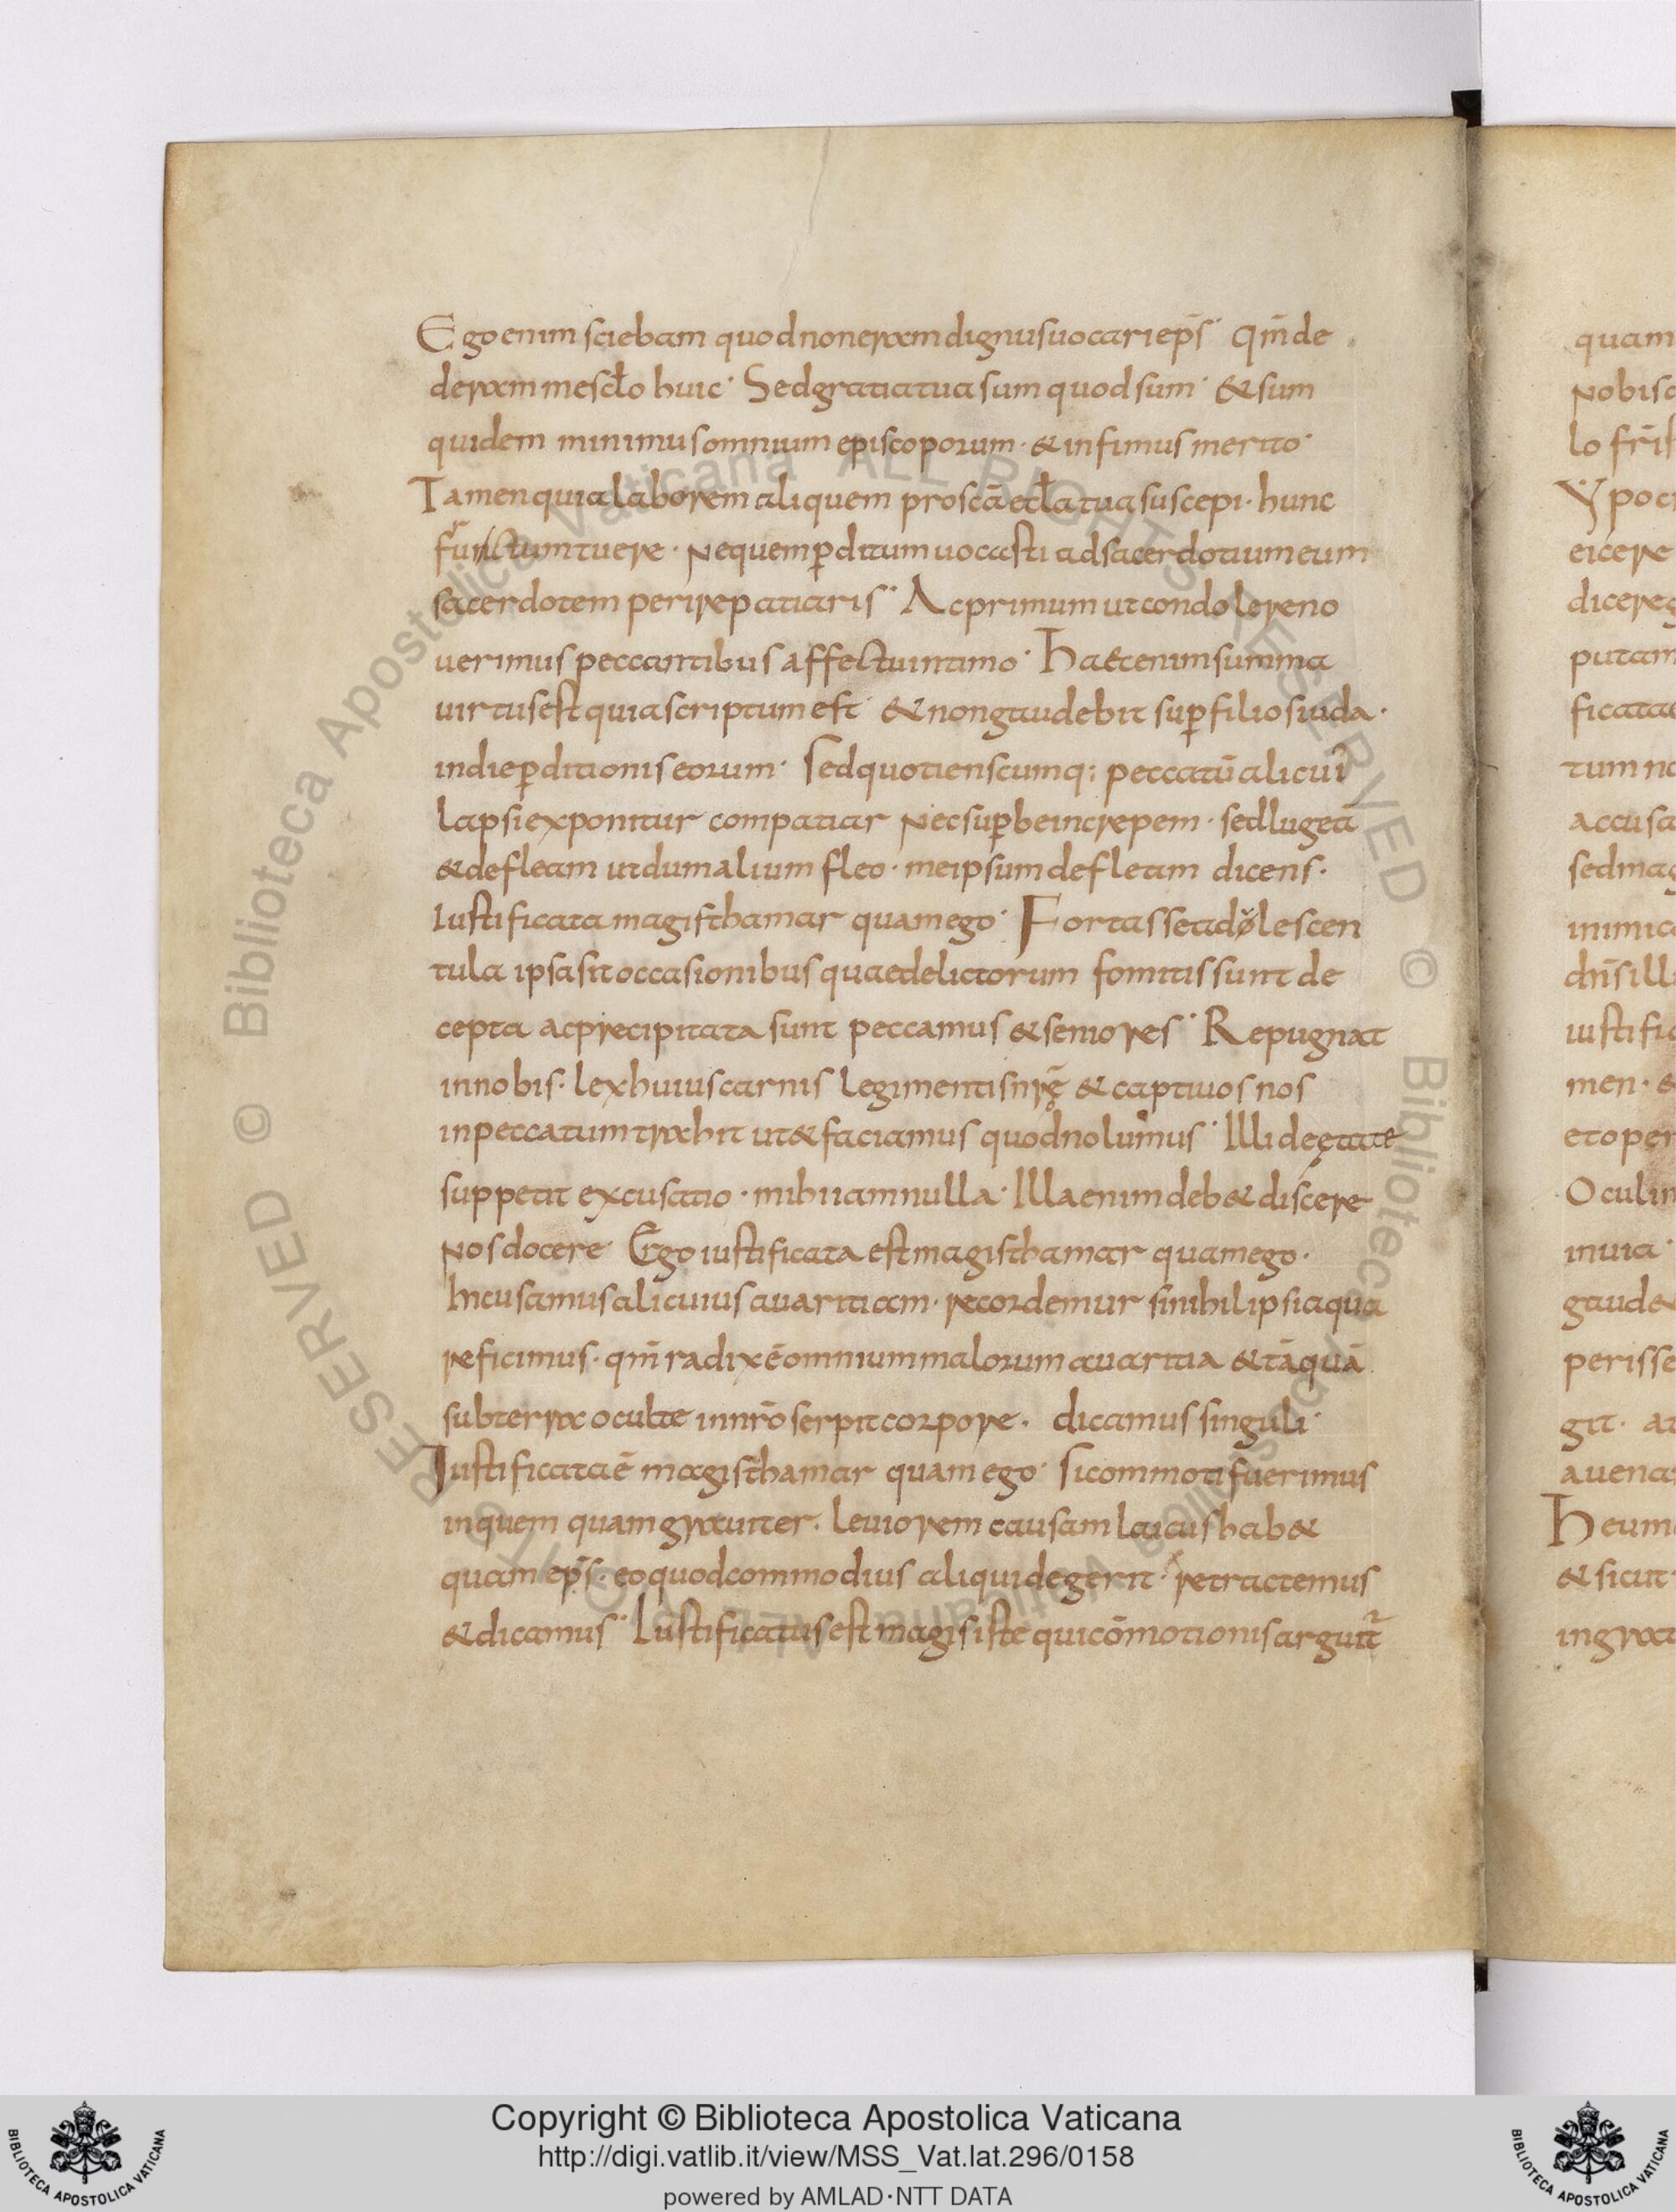 Ego enim sciebam quod non eram dignus uocari ep̄s qm̄ de
deram me sc̄lo huic· Sed gratia tua sum quod sum· & sum
quidem minimus omnium episcoporum· & infimus merito·
Tamen quia laborem aliquem pro sc̄a eccl̄a tua suscepi· hunc
fructum tuere· Ne quem p̄ditum uocasti ad sacerdotium eum
sacerdotem perire patiaris· Ac primum ut condolere no
uerimus peccantibus affectu intimo· Haec enim summa
uirtus est quia scriptum est & non gaudebit sup̄ filios iuda·
in die p̄ditionis eorum· Sed quotienscumq: peccatū alicui'
lapsi exponitur compatiar Nec sup̄be increpem· sed lugeā
& defleam ut dum alium fleo· me ipsum defleam dicens·
Iustificata magis thamar quam ego· Fortasse adolescen
tula ipsa sit occasionibus quae delictorum fomitis sunt de
cepta ac precipitata sunt peccamus & seniores· Repugnat
in nobis· lex huius carnis legi mentis nr̄ę & captiuos nos
in peccatum trahit ut & faciamus quod nolumus· Illi de ętate
suppetit excusatio· mihi iam nulla· Illa enim deb& discere
Nos docere Ergo iustificata est magis thamar quam ego·
Incusamus alicuius auaritiam· recordemur si nihil ipsi aqua
reficimus· qm̄ radix ē omnium malorum auaritia & tāquā
sub terra oculte in nr̄o serpit corpore· dicamus singuli·
Iustificata ē magis thamar quam ego· Si commoti fuerimus
in quem quam grauiter· leuiorem causam laicus hab&
quam ep̄s· eo quod commodius aliqui degerit· retractemus
& dicamus· Iustificatus est magis iste qui cōmotionis arguit̄
quam
Nobisc
lo fr̄ih
Ypoc
eicere
dicere
putam
ficata
tum no
accusa
sed ma
inimic
dn̄s ill
iustific
men·
et oper
Oculin
inuia·
gaud&
perisse
git· a
auena
Heum
& sicut
ingrat
© Biblioteca Apostolica Vaticana ALL RIGHTS RESERVED
© Biblioteca Apostolica Vaticana ALL RIGHTS RESERVED
BIBLIOTECA APOSTOLICA VATICANA
Copyright © Biblioteca Apostolica Vaticana
http://digi.vatlib.it/view/MSS_Vat.lat.296/0158
powered by AMLAD·NTT DATA
BIBLIOTECA APOSTOLICA VATICANA